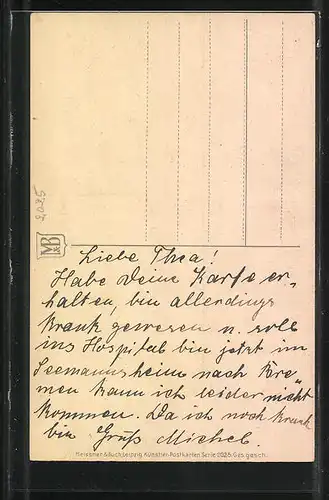 2025
M&B
Liebe Thea!
Habe Deine Karte er-
halten, bin allerdings
krank gewesen u. soll
ins Hospital bin jetzt im
Seemannsheim nach Bre-
men kann ich leider nicht
kommen. Da ich noch krank
bin Gruß Michel.
Meissner & Buch, Leipzig Künstler-Postkarten Serie 2025. Ges. gesch.